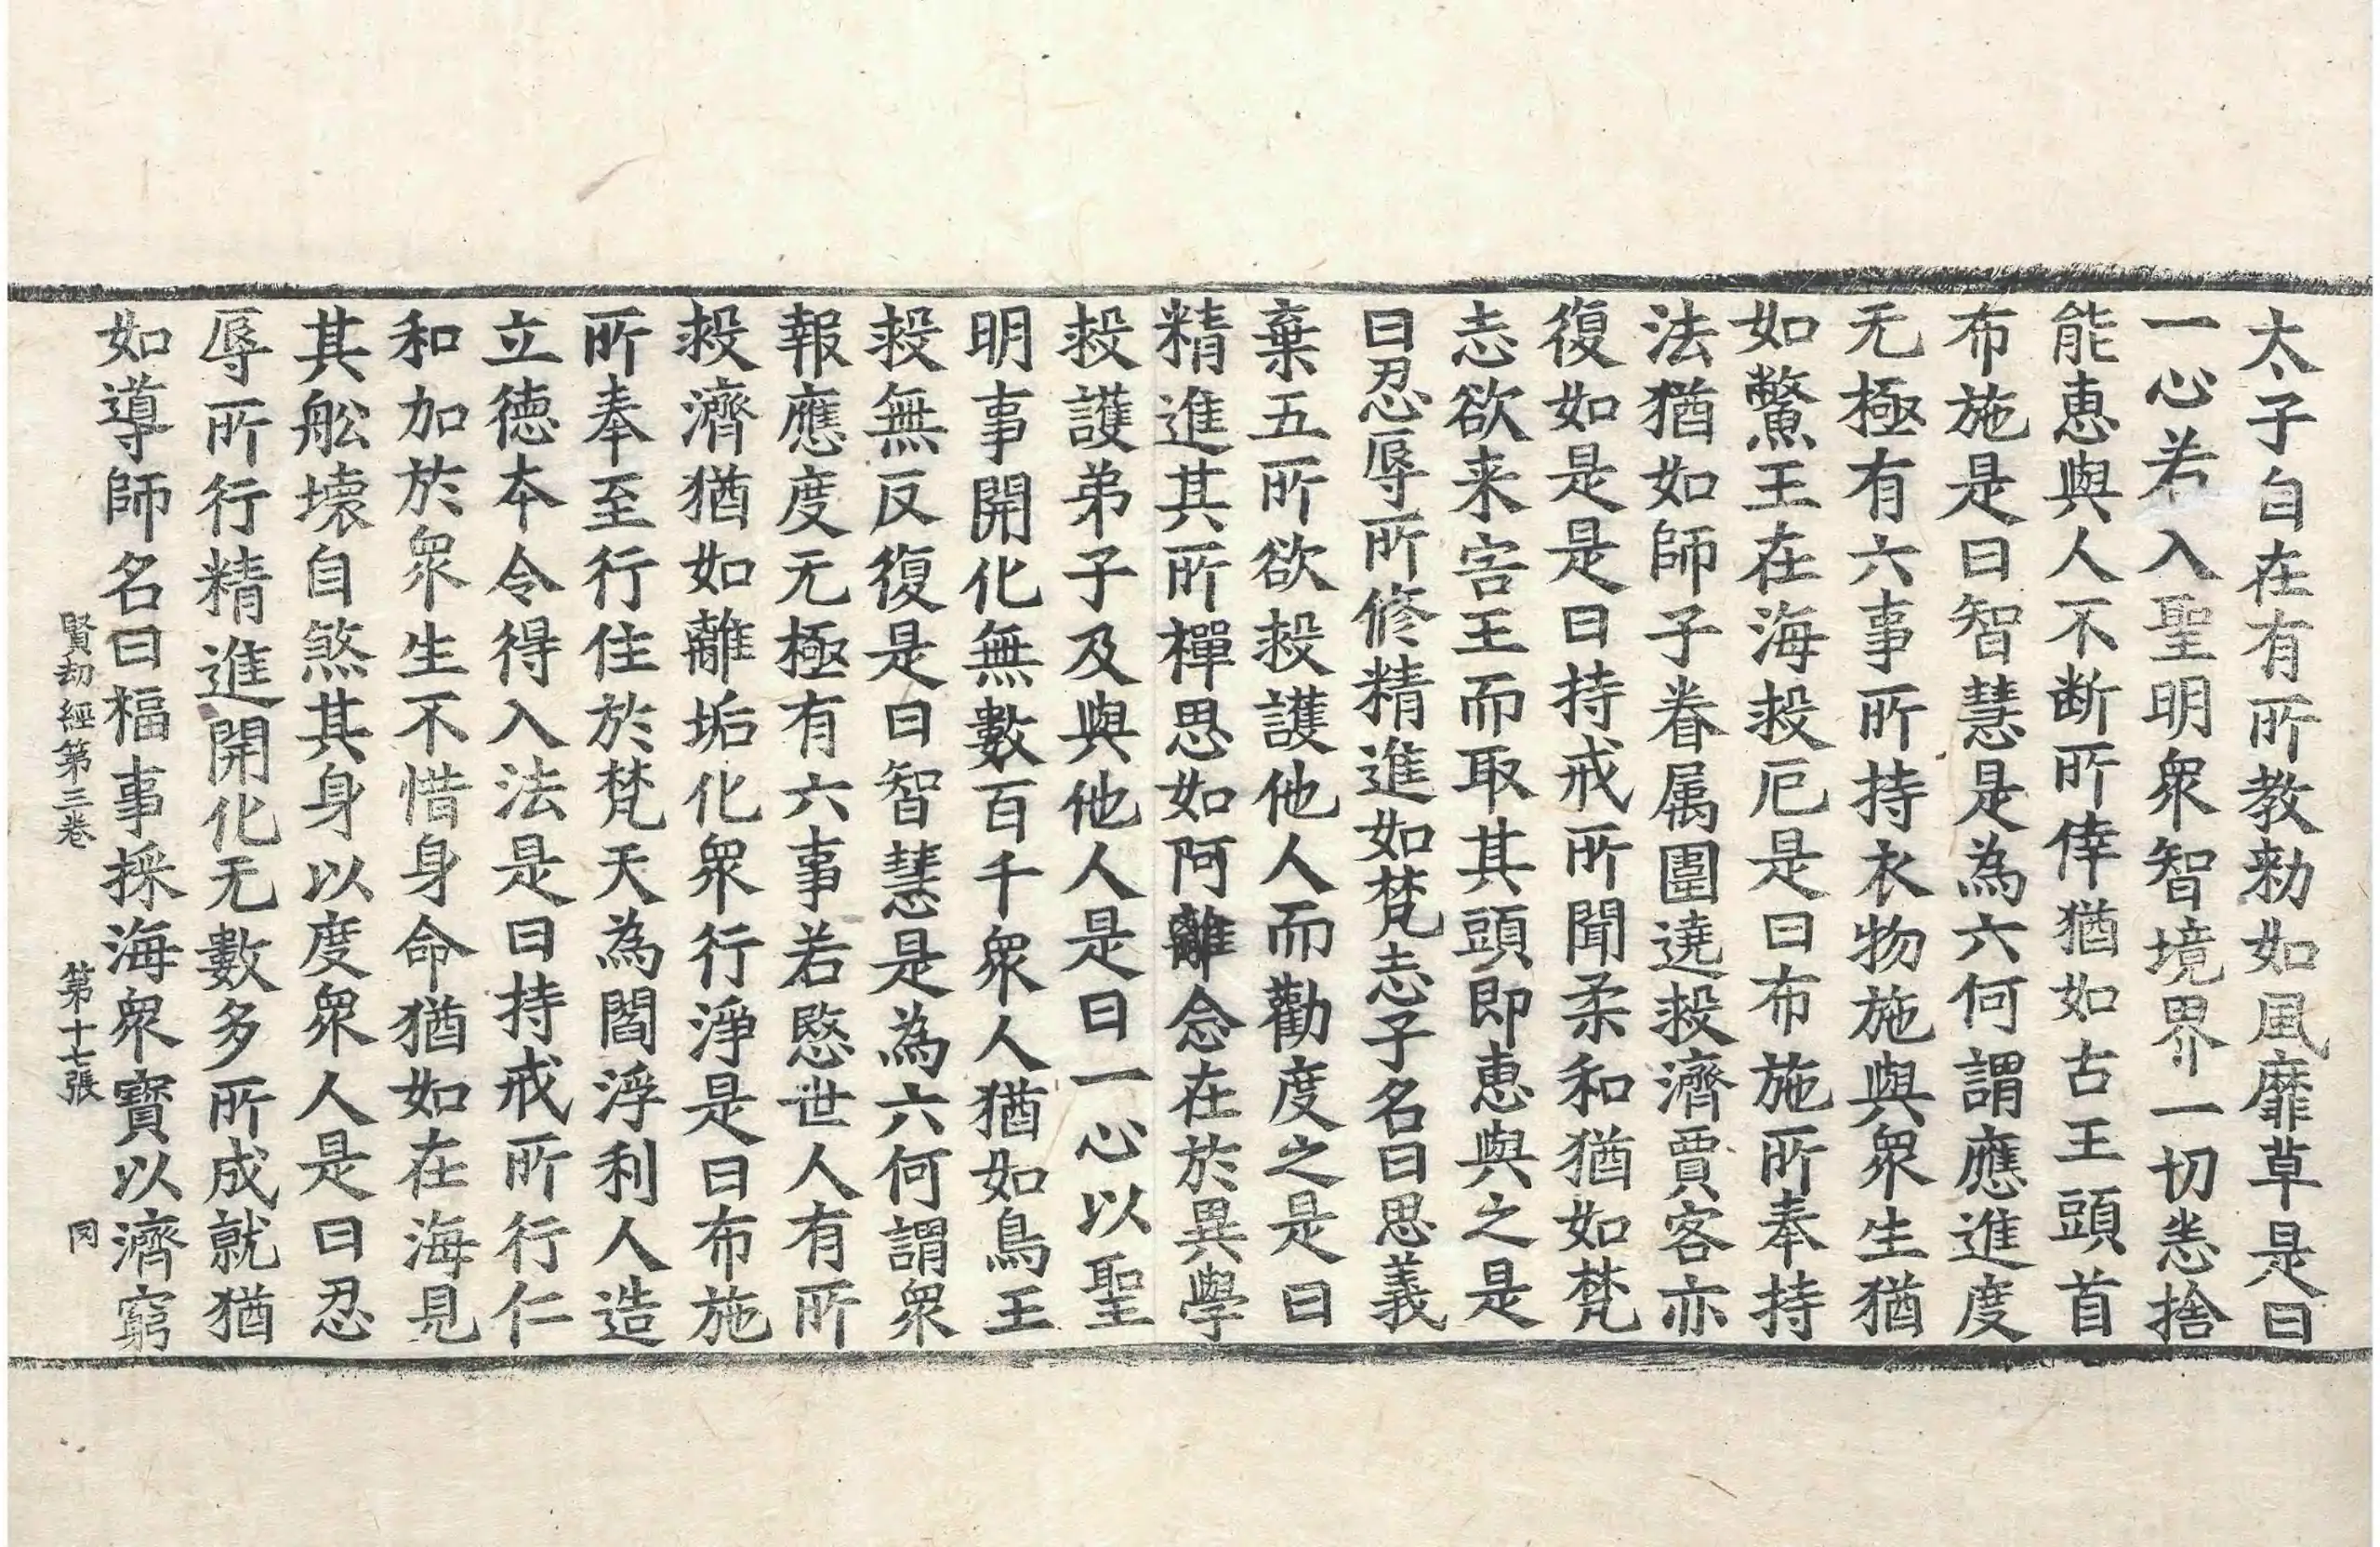 太子自在有所教勑如風靡草是曰
一心若入聖明衆智境界一切悉捨
能恵與人不断所倖猶如古王頭首
布施是曰智慧是為六何謂應進度
无極有六事所持衣物施與衆生猶
如鱉王在海投厄是曰布施所奉持
法猶如師子眷属圍遶投濟賈客亦
復如是是曰持戒所聞柔和猶如梵
志欲来害王而取其頭即恵與之是
曰忍辱所修精進如梵志子名曰思義
棄五所欲投護他人而勸度之是曰
精進其所禪思如阿離念在於異學
投護弟子及與他人是曰一心以聖
明事開化無數百千衆人猶如鳥王
投無反復是曰智慧是為六何謂衆
報應度无極有六事若愍世人有所
投濟猶如離垢化衆行淨是曰布施
所奉至行住於梵天為閻浮利人造
立徳本令得入法是曰持戒所行仁
和加於衆生不惜身命猶如在海見
其舩壊自煞其身以度衆人是曰忍
辱所行精進開化无數多所成就猶
如導師名曰福事採海衆寶以濟窮
賢劫經第三卷 第十七張 罔